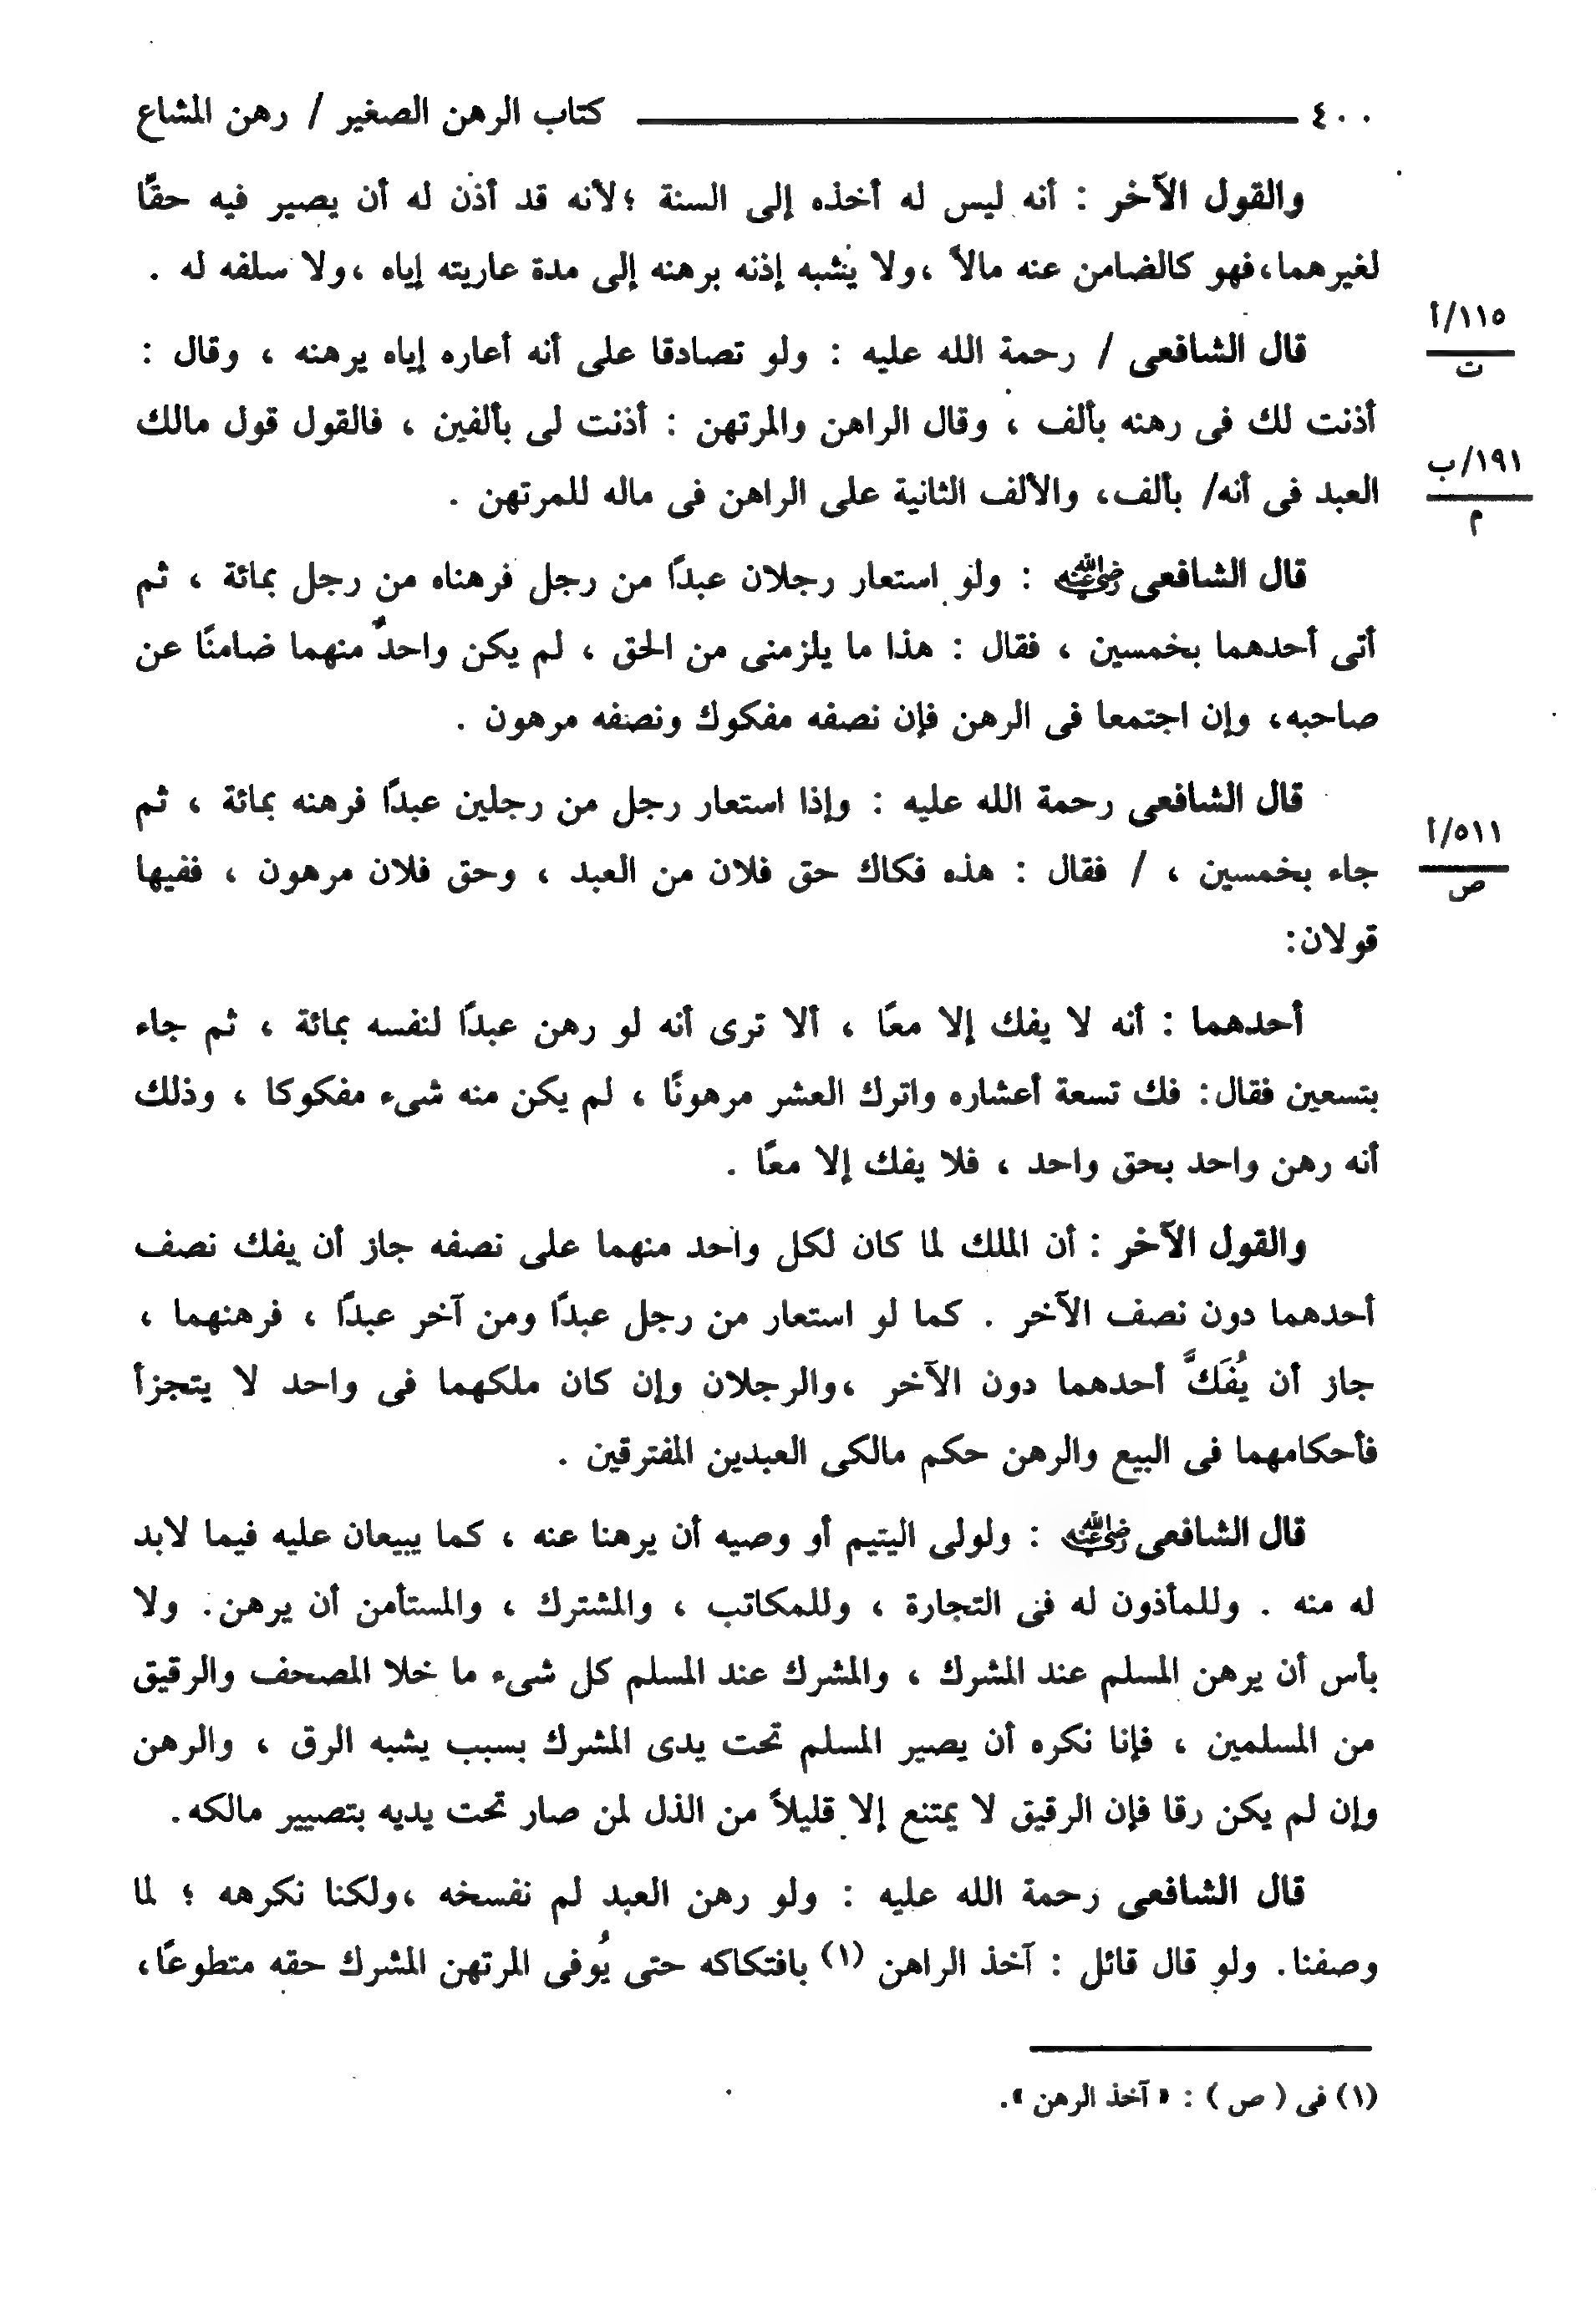 ٤٠٠ كتاب الرهن الصغير / رهن المشاع
والقول الآخر : أنه ليس له أخذه إلى السنة ؛لأنه قد أذن له أن يصير فيه حقًا
لغيرهما،فهو كالضامن عنه مالاً ،ولا يشبه إذنه برهنه إلى مدة عاريته إياه ،ولا سلفه له .
قال الشافعى / رحمة الله عليه : ولو تصادقا على أنه أعاره إياه يرهنه ، وقال :
١١٥/أ
ت
أذنت لك فى رهنه بألف ، وقال الراهن والمرتهن : أذنت لى بألفين ، فالقول قول مالك
العبد فى أنه/ بألف، والألف الثانية على الراهن فى ماله للمرتهن .
١٩١/ب
م
قال الشافعى رضي الله عنه : ولو استعار رجلان عبدًا من رجل فرهناه من رجل بمائة ، ثم
أتى أحدهما بخمسين ، فقال : هذا ما يلزمنى من الحق ، لم يكن واحدٌ منهما ضامنًا عن
صاحبه، وإن اجتمعا فى الرهن فإن نصفه مفكوك ونصفه مرهون .
قال الشافعى رحمة الله عليه : وإذا استعار رجل من رجلين عبدًا فرهنه بمائة ، ثم
جاء بخمسين ، / فقال : هذه فكاك حق فلان من العبد ، وحق فلان مرهون ، ففيها
٥١١/أ
ص
قولان:
أحدهما : أنه لا يفك إلا معًا ، ألا ترى أنه لو رهن عبدًا لنفسه بمائة ، ثم جاء
بتسعين فقال: فك تسعة أعشاره واترك العشر مرهونًا ، لم يكن منه شىء مفكوكا ، وذلك
أنه رهن واحد بحق واحد ، فلا يفك إلا معًا .
والقول الآخر : أن الملك لما كان لكل واحد منهما على نصفه جاز أن يفك نصف
أحدهما دون نصف الآخر . كما لو استعار من رجل عبدًا ومن آخر عبدًا ، فرهنهما ،
جاز أن يُفَكَّ أحدهما دون الآخر ،والرجلان وإن كان ملكهما فى واحد لا يتجزأ
فأحكامهما فى البيع والرهن حكم مالكى العبدين المفترقين .
قال الشافعى رضي الله عنه : ولولى اليتيم أو وصيه أن يرهنا عنه ، كما يبيعان عليه فيما لابد
له منه . وللمأذون له فى التجارة ، وللمكاتب ، والمشترك ، والمستأمن أن يرهن. ولا
بأس أن يرهن المسلم عند المشرك ، والمشرك عند المسلم كل شىء ما خلا المصحف والرقيق
من المسلمين ، فإنا نكره أن يصير المسلم تحت يدى المشرك بسبب يشبه الرق ، والرهن
وإن لم يكن رقا فإن الرقيق لا يمتنع إلا قليلاً من الذل لمن صار تحت يديه بتصيير مالكه.
قال الشافعى رحمة الله عليه : ولو رهن العبد لم نفسخه ،ولكنا نكرهه ؛ لما
وصفنا. ولو قال قائل : آخذ الراهن (١) بافتكاكه حتى يُوفى المرتهن المشرك حقه متطوعًا،
(١) فى ( ص ) : « آخذ الرهن ».